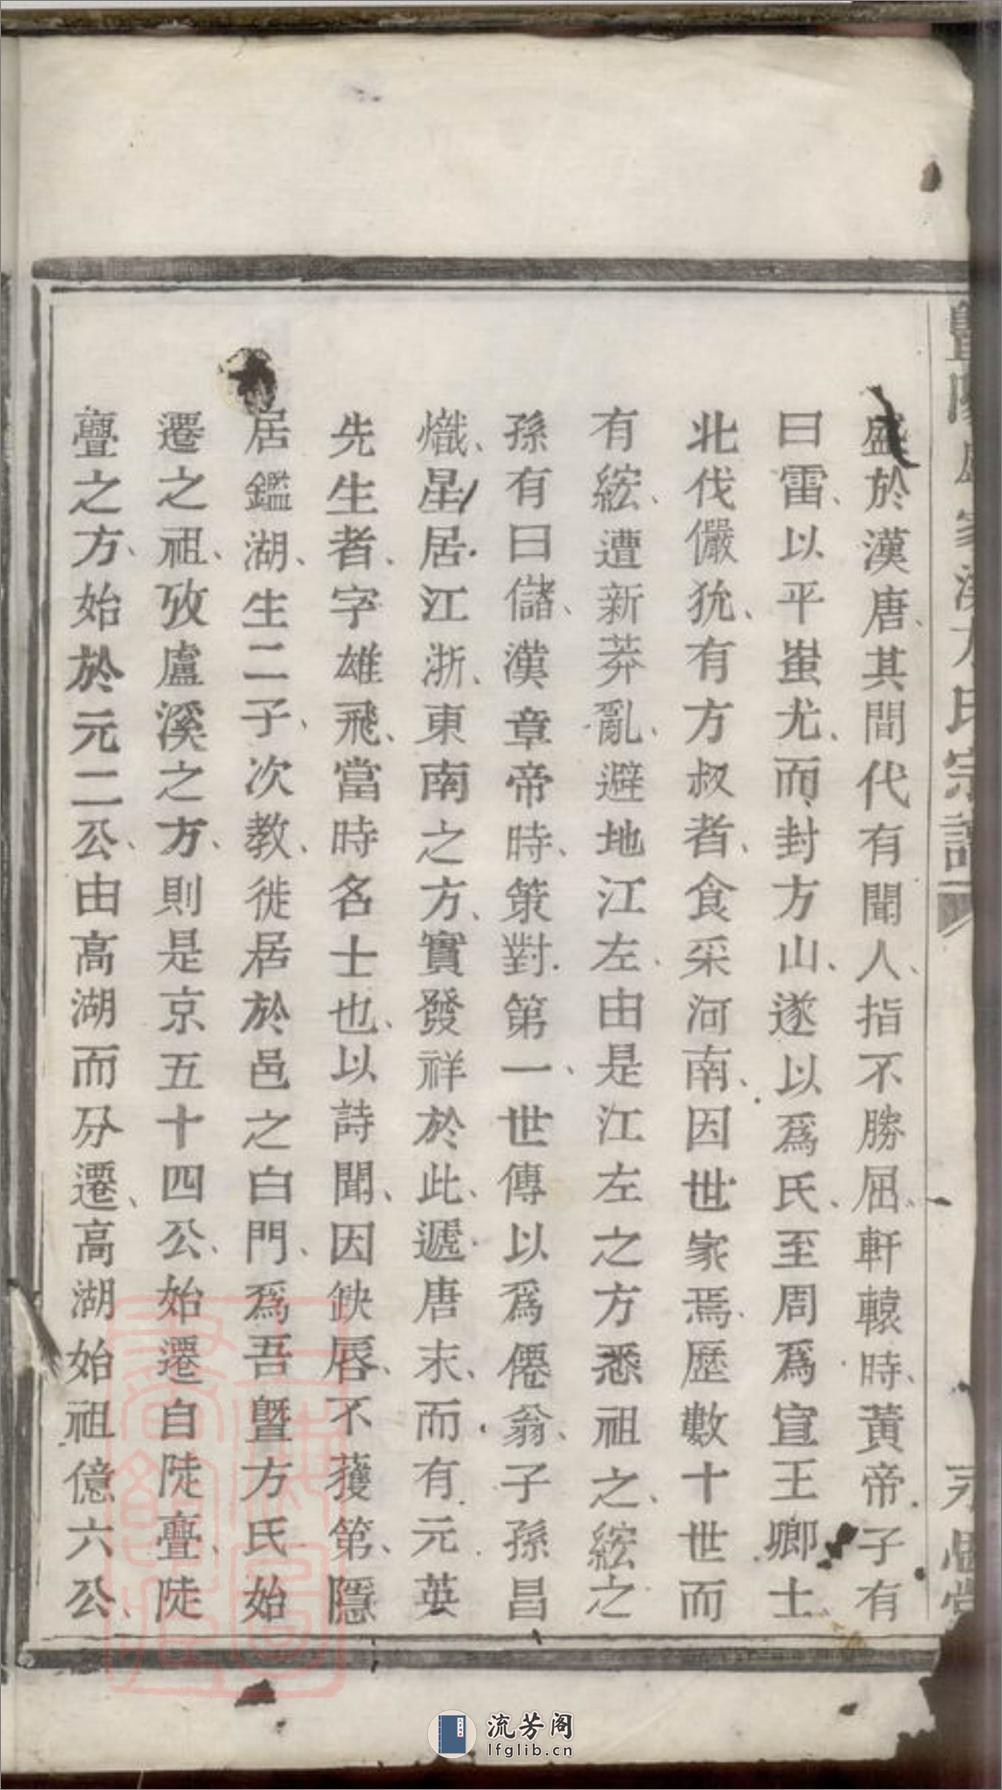 暨陽盧家溪方氏宗譜
永思堂
盛於漢唐、其間代有聞人、指不勝屈、軒轅時、黃帝子有
曰雷、以平蚩尤、而封方山、遂以爲氏、至周爲宣王卿士、
北伐儼狁、有方叔者、食采河南、因世家焉、歷數十世而
有綋、遭新莽亂、避地江左、由是江左之方悉祖之、綋之
孫有曰儲、漢章帝時、策對第一、世傳以爲僊翁、子孫昌
熾、星居江浙、東南之方、實發祥於此、遞唐末、而有元英
先生者、字雄飛、當時名士也、以詩聞、因缺唇、不獲第、隱
居鑑湖、生二子、次教、徙居於邑之白門、爲吾暨方氏始
遷之祖、攷盧溪之方、則是京五十四公、始遷自陡亹、陡
亹之方、始於元二公、由高湖而分遷、高湖始祖億六公、
流芳阁
lfglib.cn